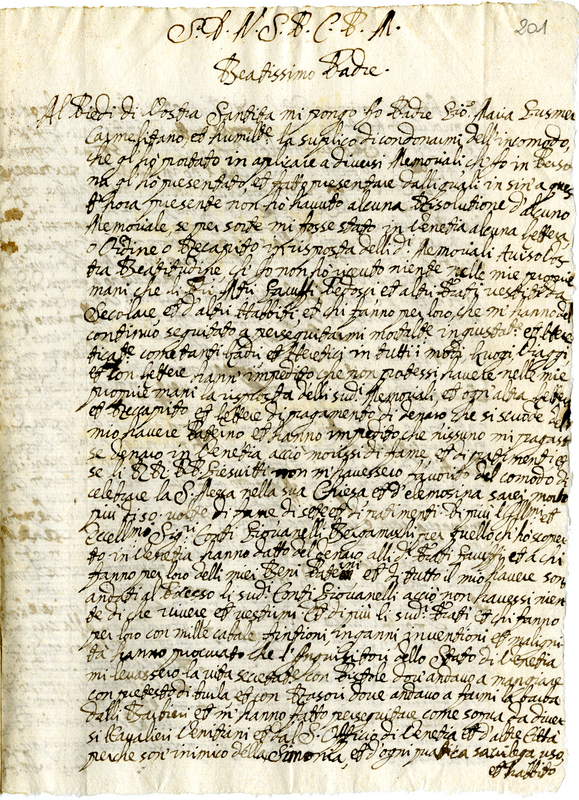 201
S. D. N. S. B. C. B. M.
Beatissimo Padre.
Al Piedi di Vostra Santità mi pongo Io Padre Gio: Maria
Carmelitano et humilte. la suplico di condonarmi dell'incomodo,
che gl'hò portato in aplicare a diversi Memoriali che Io in Perso
na gl'hò presentato, et fatto presentare dalli quali in sin a ques
t'hora presente non hò havuto alcuna Risolutione d'alcuno
Memoriale, se per sorte mi fosse stato in Venetia alcuna lettera
o Ordine o Recapito in risposta delli d.i Memoriali aviso Vos
tra Beatitudine che Io non hò ricevuto niente nelle mie proprie
mani che li et altri Frati vestiti da
Secolare et d'altri Habbiti et chi fanno per loro, che m'hanno del
continuo seguitato a perseguitarmi mortalte. ingiustate. et
come tanti ladri et Heretici in tutti i modi luoghi
et con lettere hann'impedito che non potessi havere nelle mie
proprie mani la risposta delli sud.i Memoriali et ogn'altra lettera
et Recapito et lettere di pagamento di denaro che si scuode del
mio havere Paterno et hanno impedito che nissuno mi pagass
se denaro in Venetia acciò morissi di fame et di patimenti et
se li RR. PP. Giesuiti non m'havessero favorito del comodo di
celebrare la S. Messa nella sua Chiesa et d'elemosina sarei morto
più di 50. volte di fame di sete et di patimenti di più l'Illmi. et
Eccellmi. Sigri. Conti Giovanelli Bergamaschi per quello ch'hò scoper
to in Venetia hanno dato del denaro alli d.i Frati et a chi
fanno per loro delli miei Beni Paterni et di tutto il mio havere son
andati al Possesso li sud.i Conti Giovanelli acciò non havessi nien
te di che vivere et vestirmi et di più li sud.i Frati et chi fanno
per loro con mille cabale fintioni inganni inventioni et maligni
tà hanno procurato che l'Inquisitori dello Stato di Venetia
mi levassero la vita con Pistole dov'andavo a mangiare
con pretesti di burla et con Rasori dove andavo a farmi la barba
dalli Barbieri et m'hanno fatto perseguitare come sopra da diver
si Kavalieri Venetiani et dal S. Officio di Venetia et d'altre Città
perche son inimico della Simonia, et d'ogni pratica sacrilega, uso,
et habbito